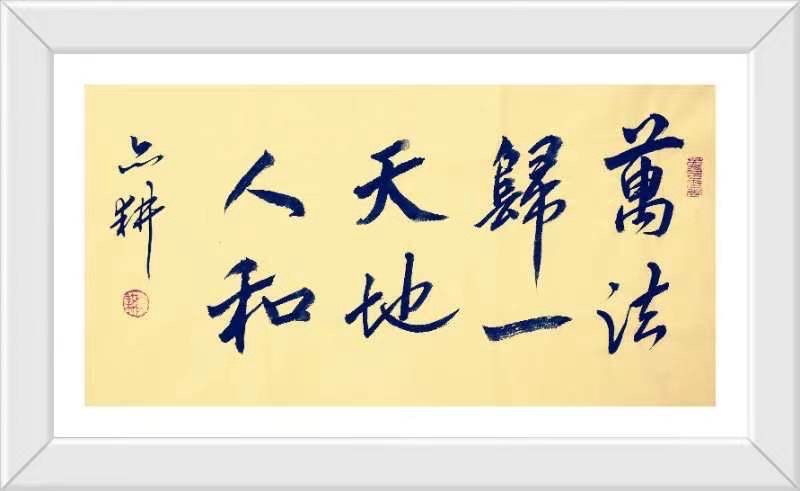 萬法
歸一
天地
人和